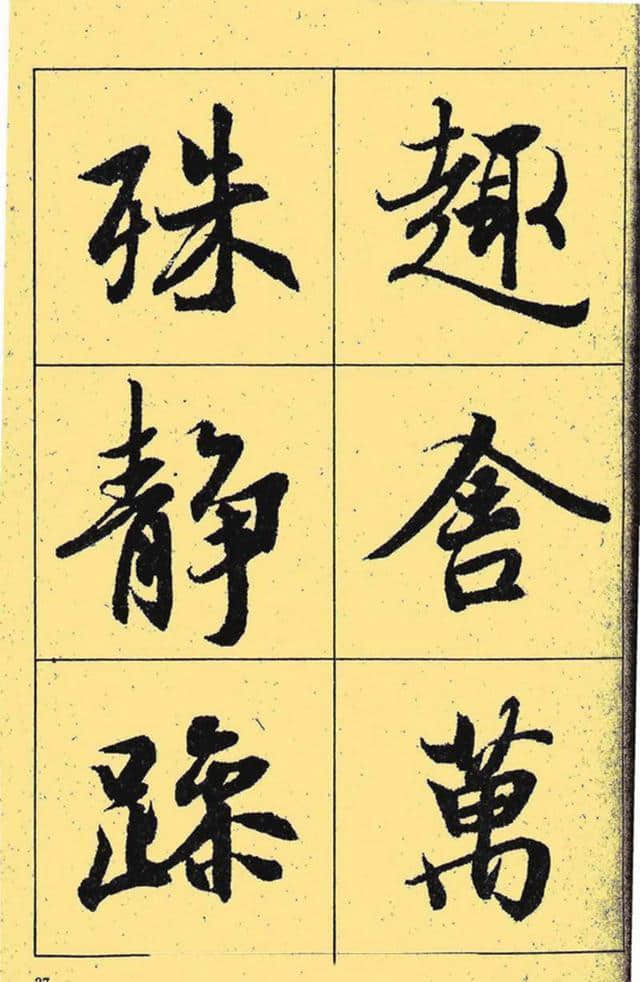 趣舍萬
殊静躁
27